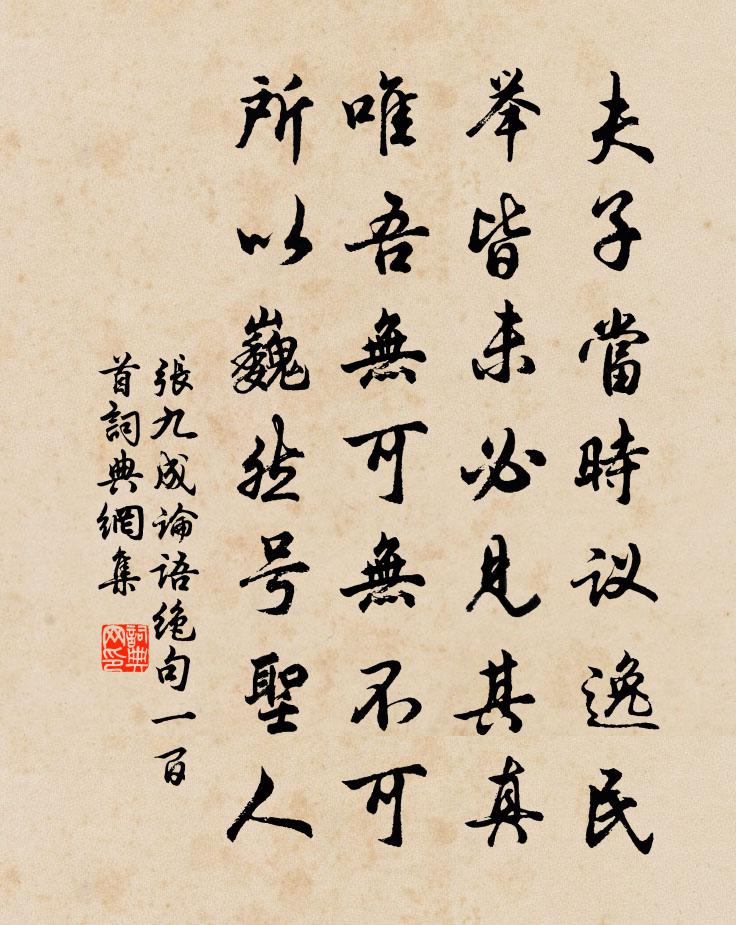 夫子當時议逸民
举皆未必見其真
唯吾無可無不可
所以巍然号聖人
張九成論語绝句一百
首詞典網集
詞典网印